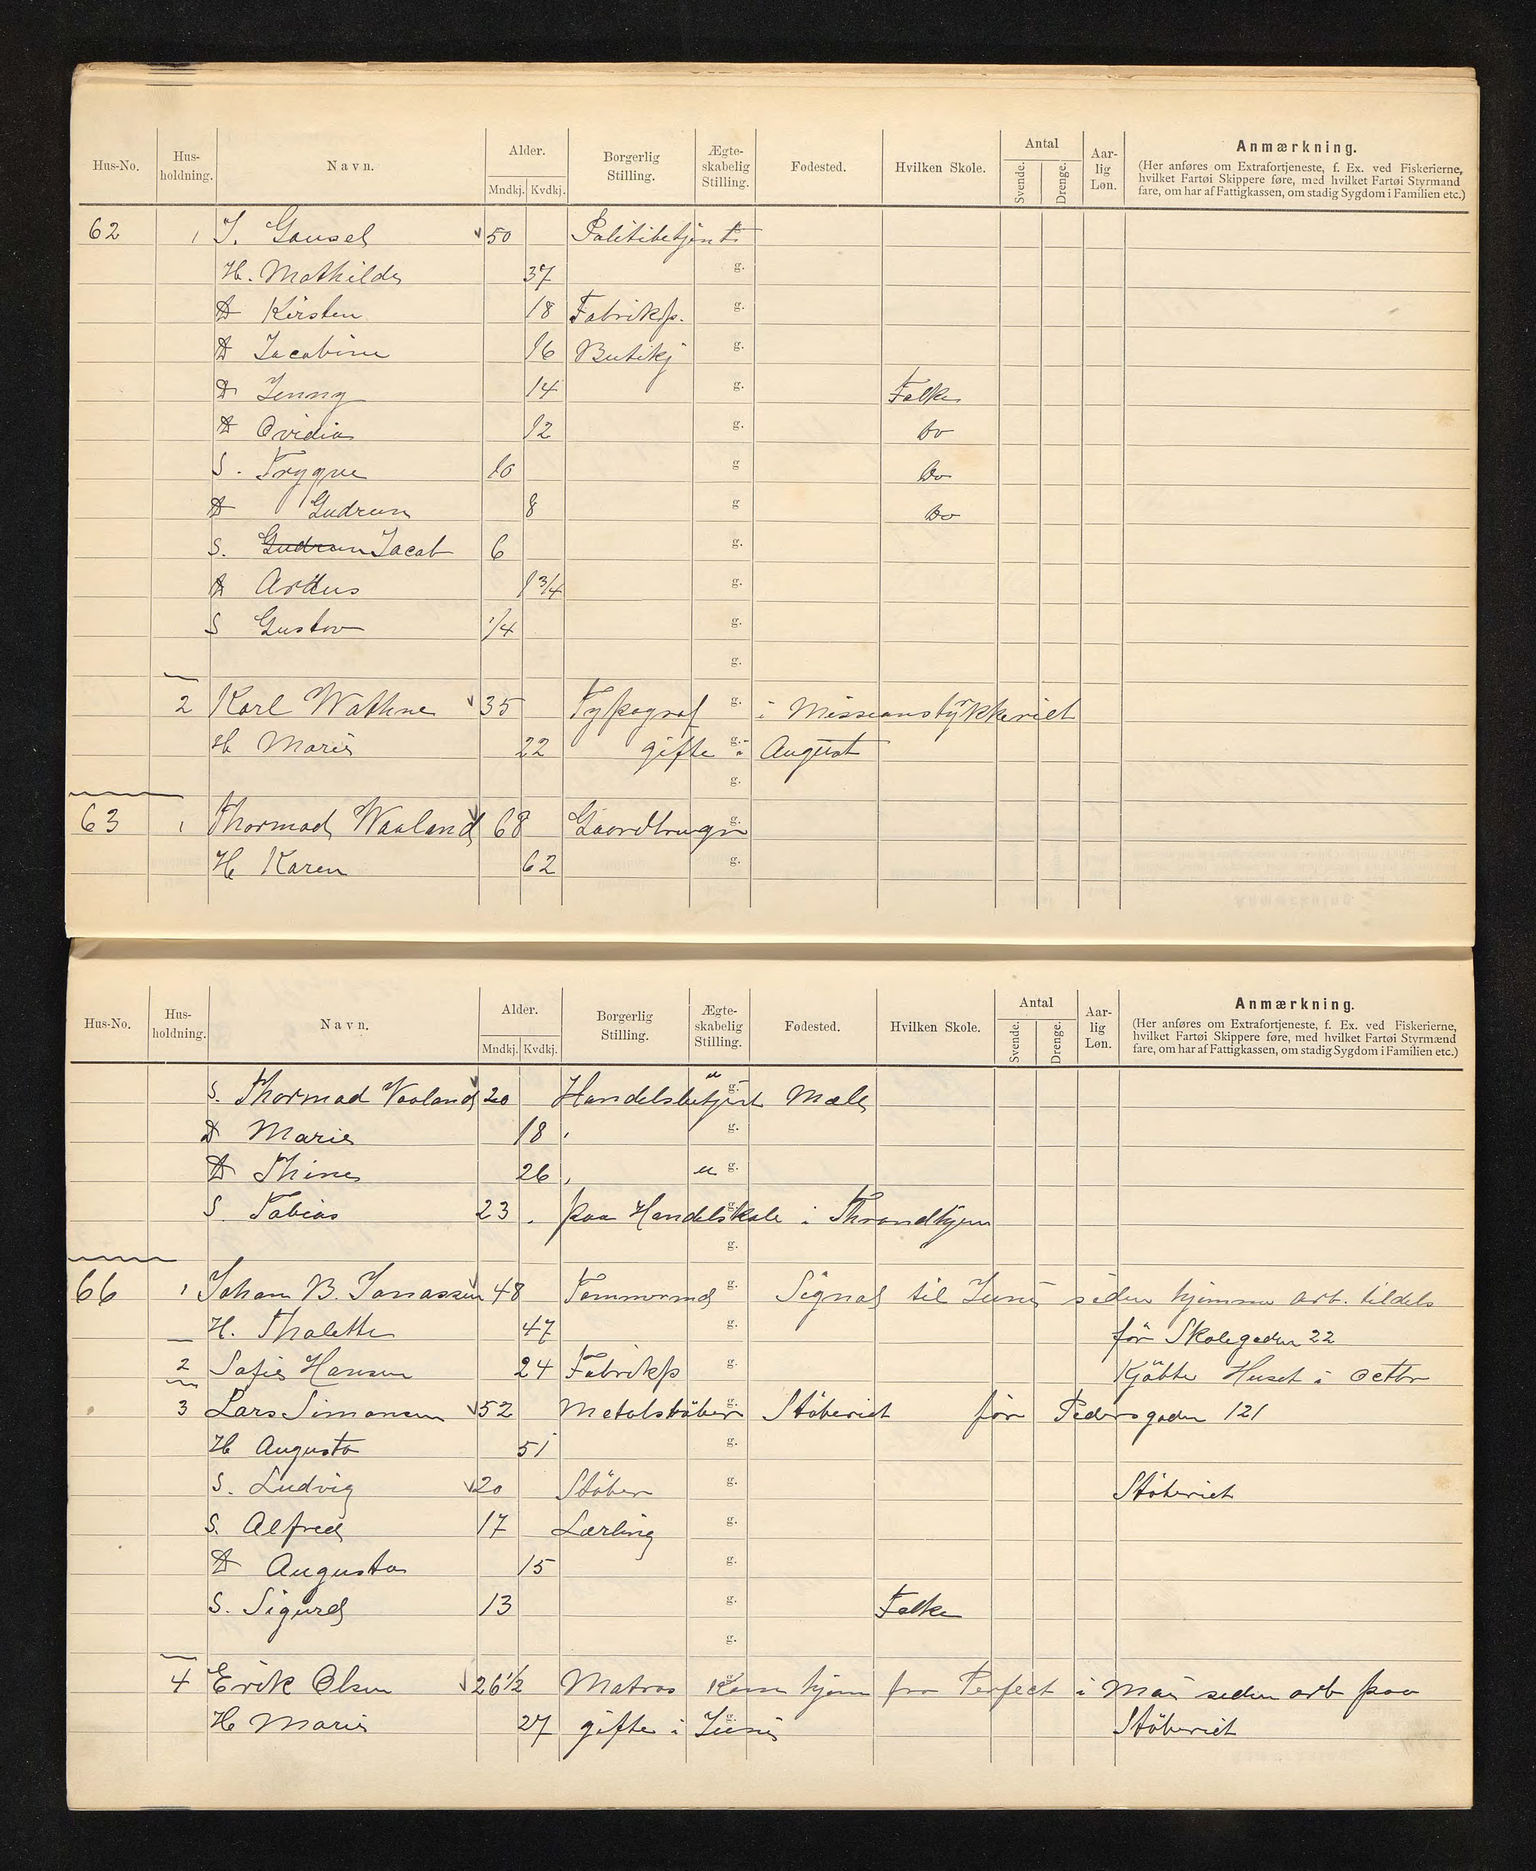 Hus-No. Hus-holdning. Navn. Alder. Mndkj. Kvdkj. Borgerlig Stilling. Ægte-skabelig Stilling. Fødested. Hvilken Skole. Antal Svende. Drenge. Aar-lig Løn. Anmærkning.
(Her anføres om Extrafortjeneste, f. Ex. ved Fiskerierne,
hvilket Fartøi Skippere føre, med hvilket Fartøi Styrmænd
fare, om har af Fattigkassen, om stadig Sygdom i Familien etc.)
62 1 J. Gausel 50 Politibetjent
H. Mathilde 37 g.
D Kirsten 18 Fabrikp. g.
D Jacobine 16 Butikj g.
D Jenny 14 g. Folke
D Ovidia 12 g. Do
S. Trygve 10 g Do
D Gudrun 8 g Do
S. Gudrun Jacob 6 g.
D 1 3/4 g.
S Gustav 1/4 g.
g.
2 Karl Wathne 35 Typograf g. i Missionstrykkeriet
H Marie 22 gifte i g. August
g.
63 1 Thormod Waaland 68 Gaardbruger g.
H Karen 62 g.
Hus-No. Hus-holdning. Navn. Alder. Mndkj. Kvdkj. Borgerlig Stilling. Ægte-skabelig Stilling. Fødested. Hvilken Skole. Antal Svende. Drenge. Aar-lig Løn. Anmærkning.
(Her anføres om Extrafortjeneste, f. Ex. ved Fiskerierne,
hvilket Fartøi Skippere føre, med hvilket Fartøi Styrmænd
fare, om har af Fattigkassen, om stadig Sygdom i Familien etc.)
S. Thormod Vaaland 20 Handelsbetjent u g.
D Marie 18 g.
D Thine 26 u g.
S. Tobias 23 paa Handelskole g. i Throndhjem
g.
66 1 Johan B. Jonassen 48 Tømmermd g. Signal til Juni siden hjemme arb. tildels
H. Thalette 47 g. før Skolegaden 22
2 Sofie Hansen 24 Fabrikp g. Kjöbte Huset i Octbr
3 Lars Simonsen 52 Metalstöber g. Stöberiet för Pedersgaden 121
H Augusta 51 g.
S. Ludvig 20 Stöber g. Stöberiet
S. Alfred 17 Lærling g.
D Augusta 15 g.
S. Sigurd 13 g. Folke
g.
4 Erik Olsen 26 1/2 Matros g. Kom hjem fra Perfect i Mai siden arb paa
H Marie 27 gifte i Juni g. Stöberiet